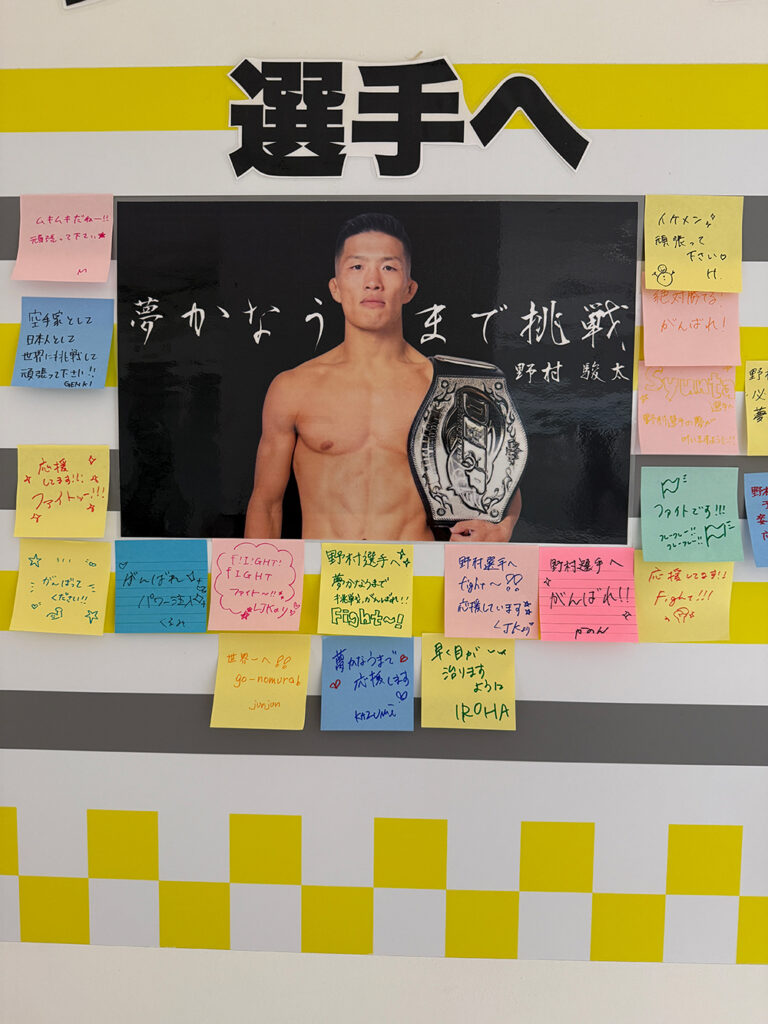 選手へ
夢かなうまで挑戦
野村駿太
DEEP
ムキムキだねー!!
頑張って下さい★
M
空手家として
日本人として
世界に挑戦して
頑張って下さい!!
GENKI
応援
してます!!
ファイトッー!!!
がんばって
ください!!
がんばれ
パワー注入
くるみ
F!IGHT!
FIGHT
ファイト〜!!
LJKより
野村選手へ
夢かなうまで
挑戦、がんばれ!!
Fight〜!
野村選手へ
fight〜!!
応援しています
LJKより
野村選手へ
がんばれ!!
イケメン
頑張って
下さい♡
H.
絶対勝てる!
がんばれ!
Syunta
選手へ
野村選手の夢が
叶いますように!!
ファイトです!!!
フレーフレー!!
フレーフレー!!
応援してます!!
Fight!!!
世界一へ!!
go-nomurab
junjun
夢かなうまで
応援します
KAZUMI
早く目が
治ります
ように
IROHA
野村
必
夢
野村